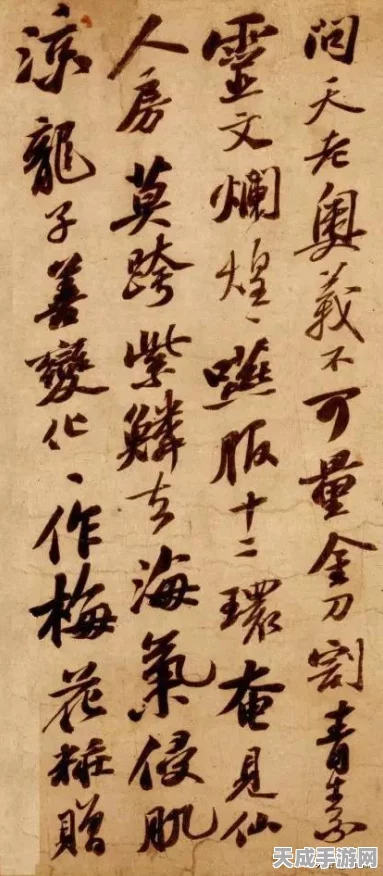 問天老奥義不可量金刀割青素
靈文爛煌〻嚥服十二環奄見仙
人房莫跨紫鱗去海氣侵肌
涼龍子善變化〻作梅花粧贈
天成手游网